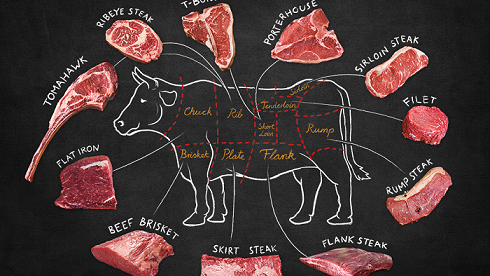 RIBEYE STEAK
T-BON
PORTERHOUSE
TOMAHAWK
SIRLOIN STEAK
FILET
Sirloin
Tenderloin
Chuck
Rib
Short
Loin
Rump
FLAT IRON
Brisket
Plate
Flank
RUMP STEAK
BEEF BRISKET
SKIRT STEAK
FLANK STEAK